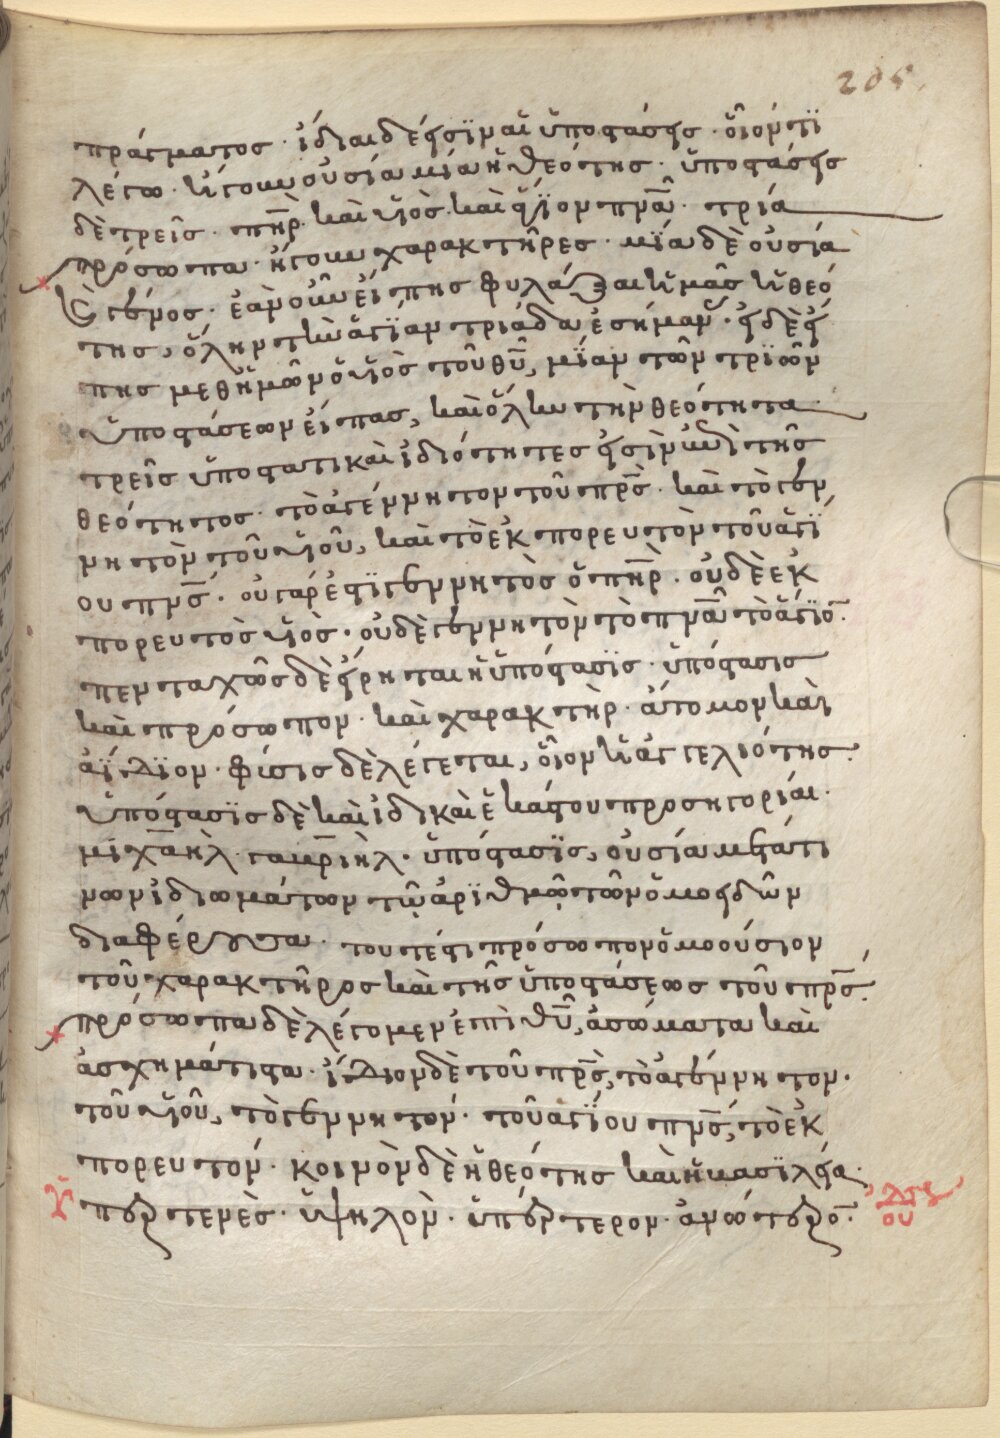 205
πράγματος · ἰδίαι δέ εἰσϊν αἱ ὑποστάσεις · οἷον τϊ
λέγω · ἤγουν οὐσία μία ἡ θεότης · ὑποστάσεις
δὲ τρεῖς · πη̅ρ · καὶ υἱὸς · καὶ ἅγϊον πνα̅ · τρία
πρόσωπα · ἤγουν χαρακτῆρες · μϊα δὲ οὐσία
ἐὰν οὖν εἴπης φυλάξαι ἡμᾶς ἡ θεό
της, ὅλην τὴν ἁγϊαν τριάδα ἐσήμαν · εἰ δὲ εἴ
πης μεθ ἡμῶν ὁ υἱὸς τοῦ θυ̅, μϊαν τῶν τρϊῶν
ὑποστάσεων εἶπας, καὶ ὅλην τὴν θεότητα ·
τρεῖς ὑποστατικαὶ ἰδιότητες εἰσὶν ἐπὶ τῆς
θεότητος · τὸ ἀγέννητον τοῦ πρς̅ · καὶ τὸ γεν
νητὸν τοῦ υἱοῦ, καὶ τὸ ἐκπορευτὸν τοῦ ἁγϊ
ου πνς̅ · οὐ γάρ ἐστϊ γεννητὸς ὁ πη̅ρ · οὐδὲ ἐκ
πορευτὸς υἱὸς · οὐδὲ γεννητὸν τὸ πνα̅ τὸ ἅγϊο̅ ·
πενταχῶς δὲ εἴρηται ἡ ὑπόστασϊς · ὑπόστασις
καὶ πρόσωπον · καὶ χαρακτὴρ · ἄτομον καὶ
ἀϊδϊον · φύσις δὲ λέγεται, οἷον ἡ ἀγγελιότης ·
ὑπόστασϊς δὲ καὶ ἰδικαὶ ἑκάστου προσηγορίαι ·
μϊχαὴλ · γαυριὴλ · ὑπόστασϊς, οὐσία μετά τι
νων ἰδιωμάτων τῷ ἀρϊθμῷ τῶν ὁμοειδῶν
διαφέρουσα · τουτέστι πρόσωπον ὁμοούσιον
τοῦ χαρακτῆρος καὶ τῆς ὑποστάσεως τοῦ πρς̅ ·
πρόσωπα δὲ λέγομεν ἐπὶ θυ̅, ἀσώματα καὶ
ἀσχημάτιστα · ἴδιον δὲ τοῦ πρς̅, τὸ ἀγέννητον ·
τοῦ υἱοῦ, τὸ γεννητόν · τοῦ ἁγϊου πνς̅, τὸ ἐκ
πορευτόν · κοινὸν δὲ ἡ θεότης καὶ ἡ βασϊλεία ·
ὑπερτενὲς · ὑψηλὸν · ὑπέρτερον · ἀνώτερο̅ ·